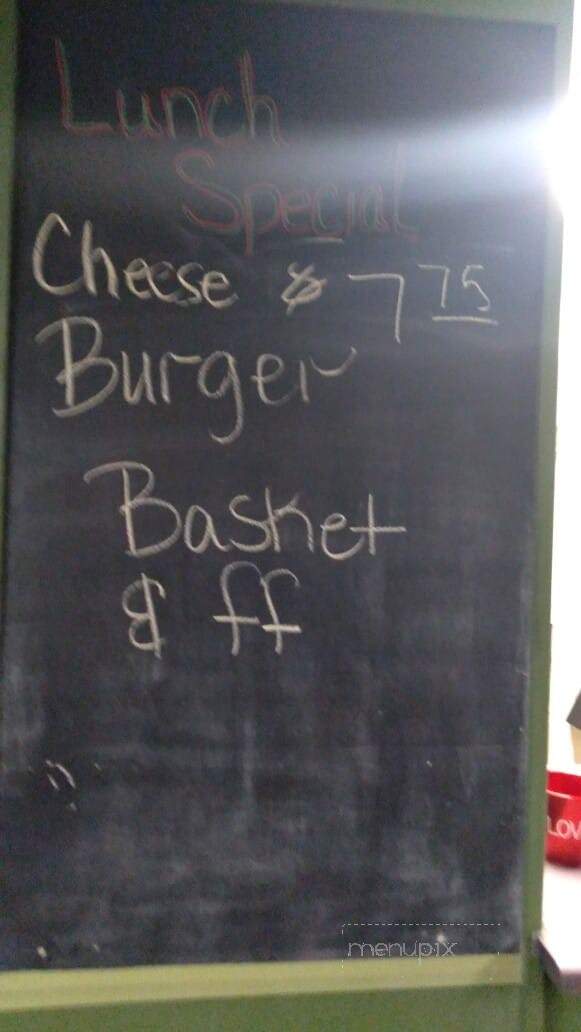 Lunch
Special
Cheese $7 75
Burger
Basket
& ff
LOV
menupix